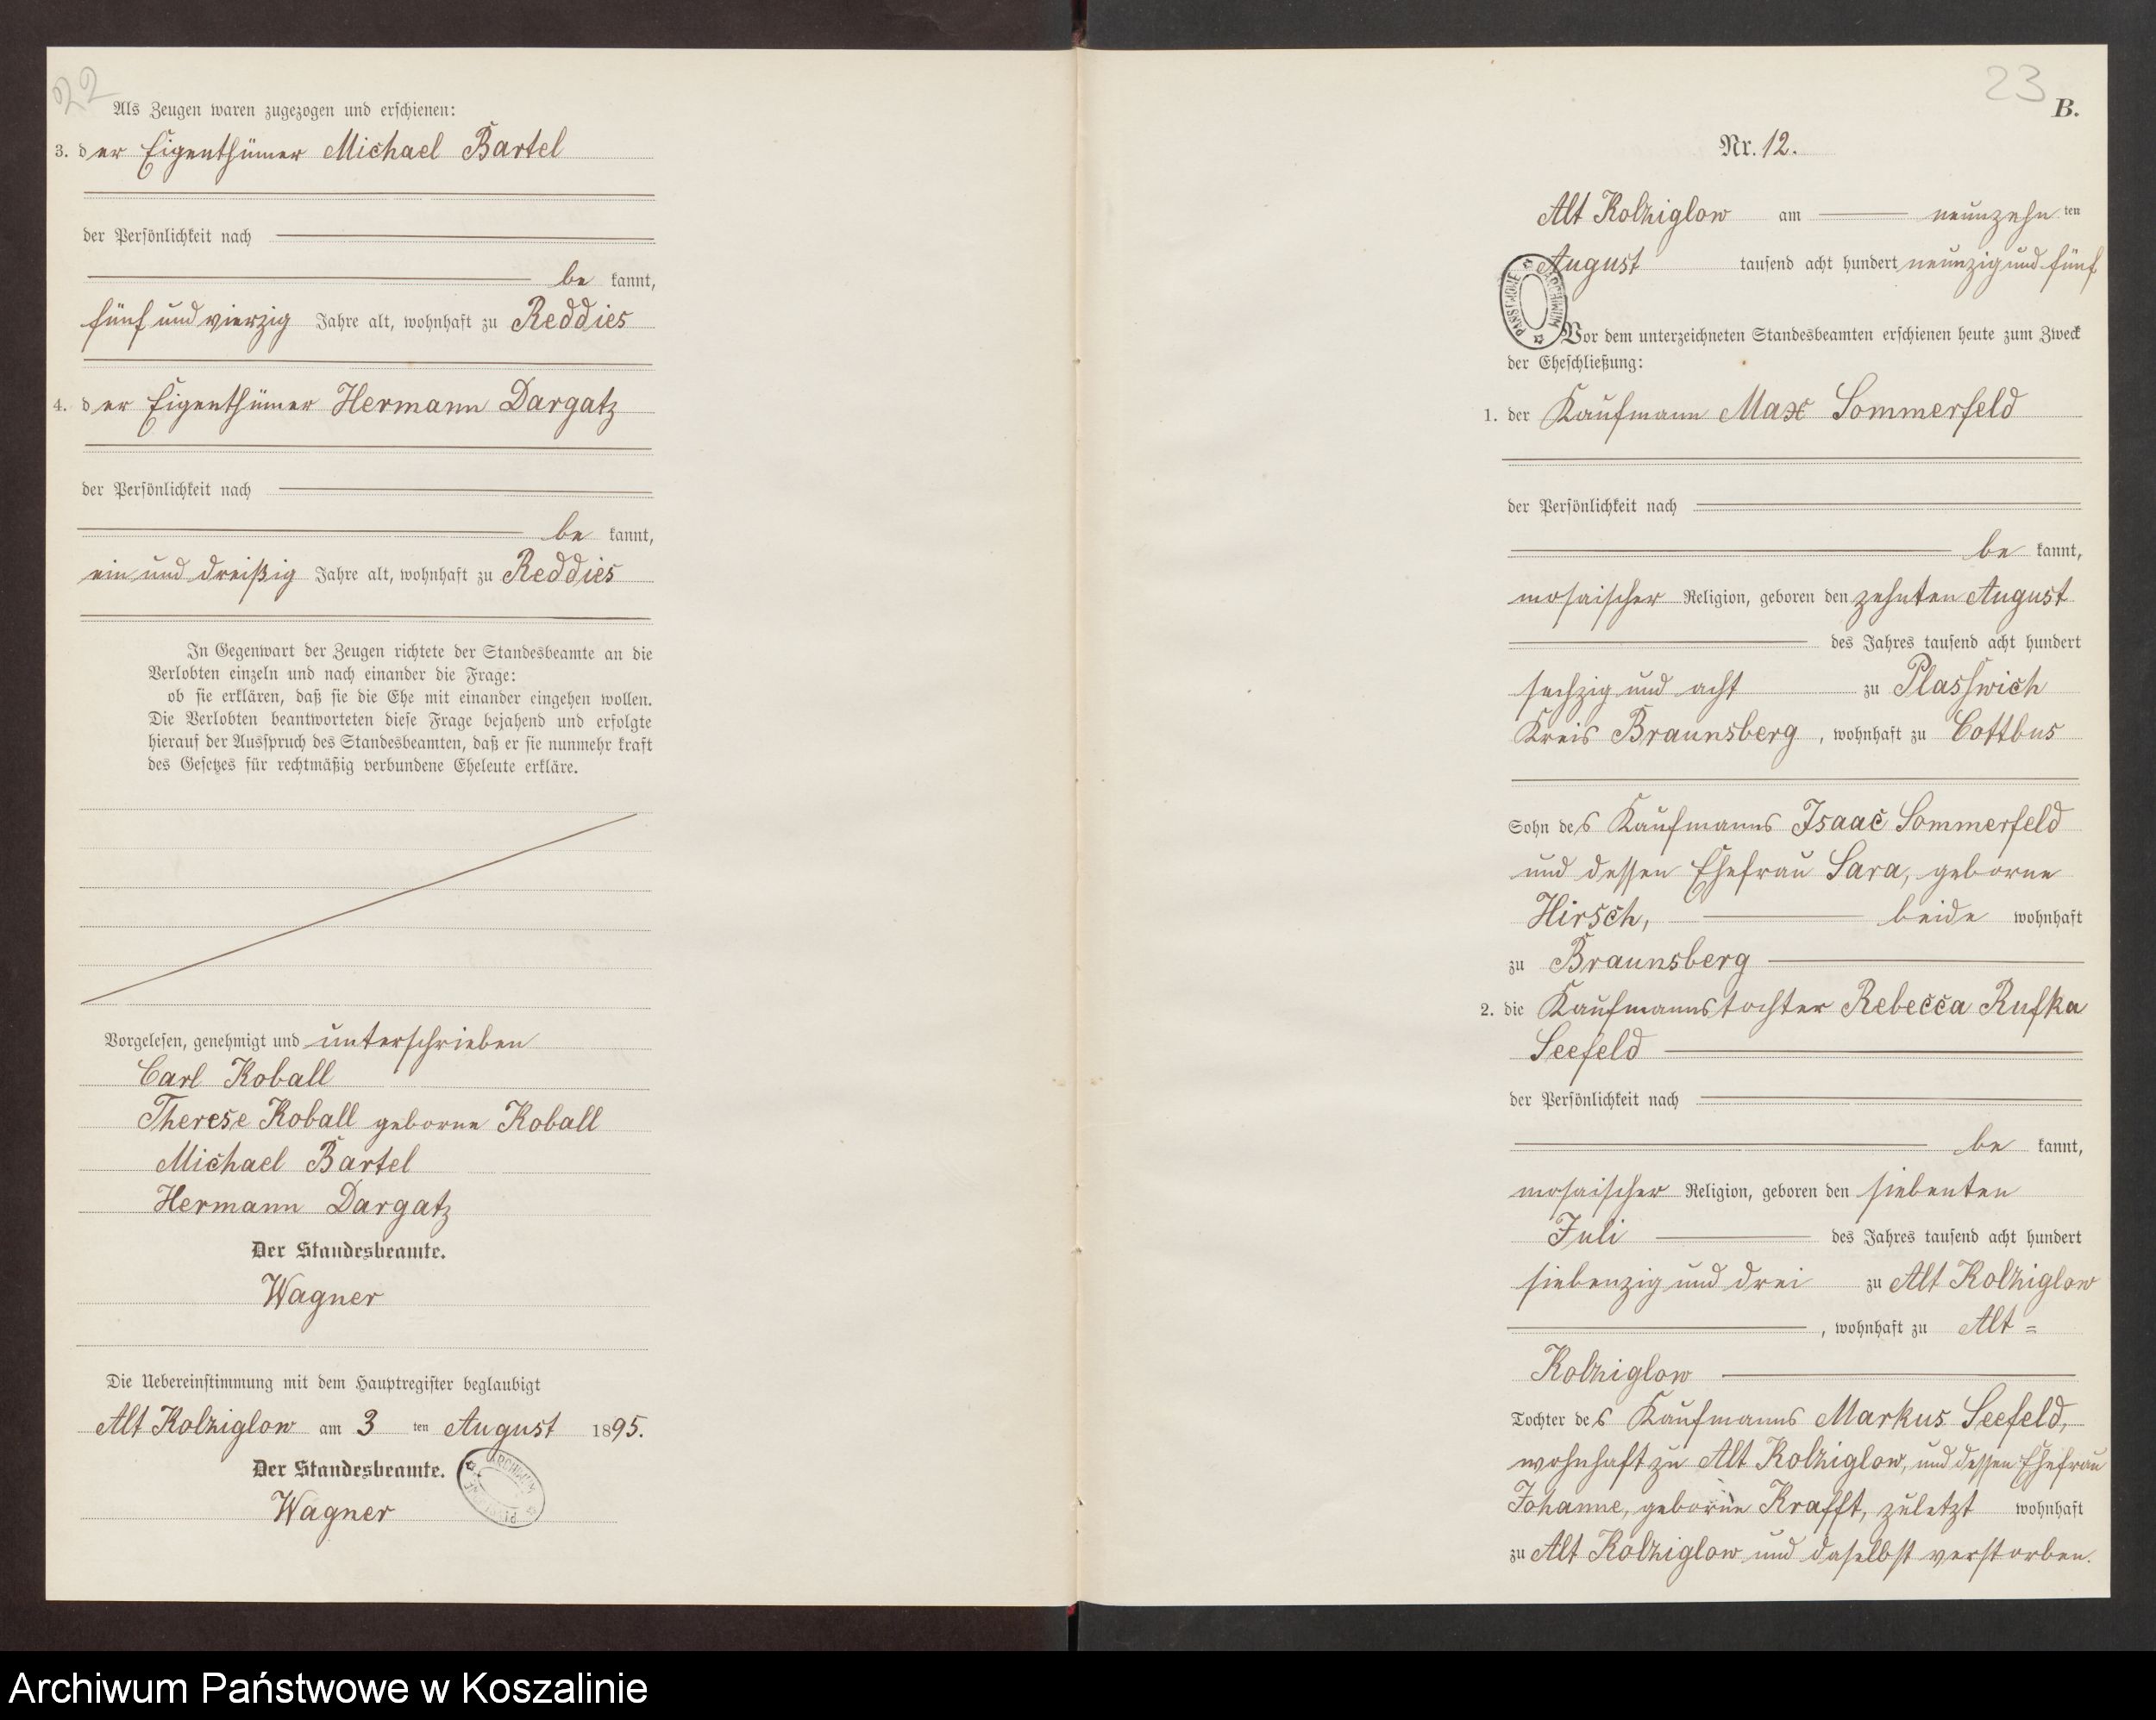 22
Als Zeugen waren zugezogen und erschienen:
3. der Eigenthümer Michael Bartel
der Persönlichkeit nach
be kannt,
fünf und vierzig Jahre alt, wohnhaft zu Reddies
4. der Eigenthümer Hermann Dargatz
der Persönlichkeit nach
be kannt,
ein und dreißig Jahre alt, wohnhaft zu Reddies
In Gegenwart der Zeugen richtete der Standesbeamte an die
Verlobten einzeln und nach einander die Frage:
ob sie erklären, daß sie die Ehe mit einander eingehen wollen.
Die Verlobten beantworteten diese Frage bejahend und erfolgte
hierauf der Ausspruch des Standesbeamten, daß er sie nunmehr kraft
des Gesetzes für rechtmäßig verbundene Eheleute erkläre.
Vorgelesen, genehmigt und unterschrieben
Carl Koball
Therese Koball geborne Koball
Michael Bartel
Hermann Dargatz
Der Standesbeamte.
Wagner
Die Uebereinstimmung mit dem Hauptregister beglaubigt
Alt Kolziglow am 3 ten August 1895.
Der Standesbeamte.
Wagner
23
B.
Nr. 12.
Alt Kolziglow am neunzehn ten
August tausend acht hundert neunzig und fünf
Vor dem unterzeichneten Standesbeamten erschienen heute zum Zweck
der Eheschließung:
1. der Kaufmann Max Sommerfeld
der Persönlichkeit nach
be kannt,
mosaischer Religion, geboren den zehnten August
des Jahres tausend acht hundert
sechzig und acht zu Plasswich
Kreis Braunsberg, wohnhaft zu Cottbus
Sohn des Kaufmanns Isaac Sommerfeld
und dessen Ehefrau Sara, geborne
Hirsch, beide wohnhaft
zu Braunsberg
2. die Kaufmannstochter Rebecca Rufka
Seefeld
der Persönlichkeit nach
be kannt,
mosaischer Religion, geboren den siebenten
Juli des Jahres tausend acht hundert
siebenzig und drei zu Alt Kolziglow
, wohnhaft zu Alt=
Kolziglow
Tochter des Kaufmanns Markus Seefeld,
wohnhaft zu Alt Kolziglow, und dessen Ehefrau
Johanne, geborne Krafft, zuletzt wohnhaft
zu Alt Kolziglow und daselbst verstorben.
ARCHIWUM PAŃSTWOWE
Archiwum Państwowe w Koszalinie